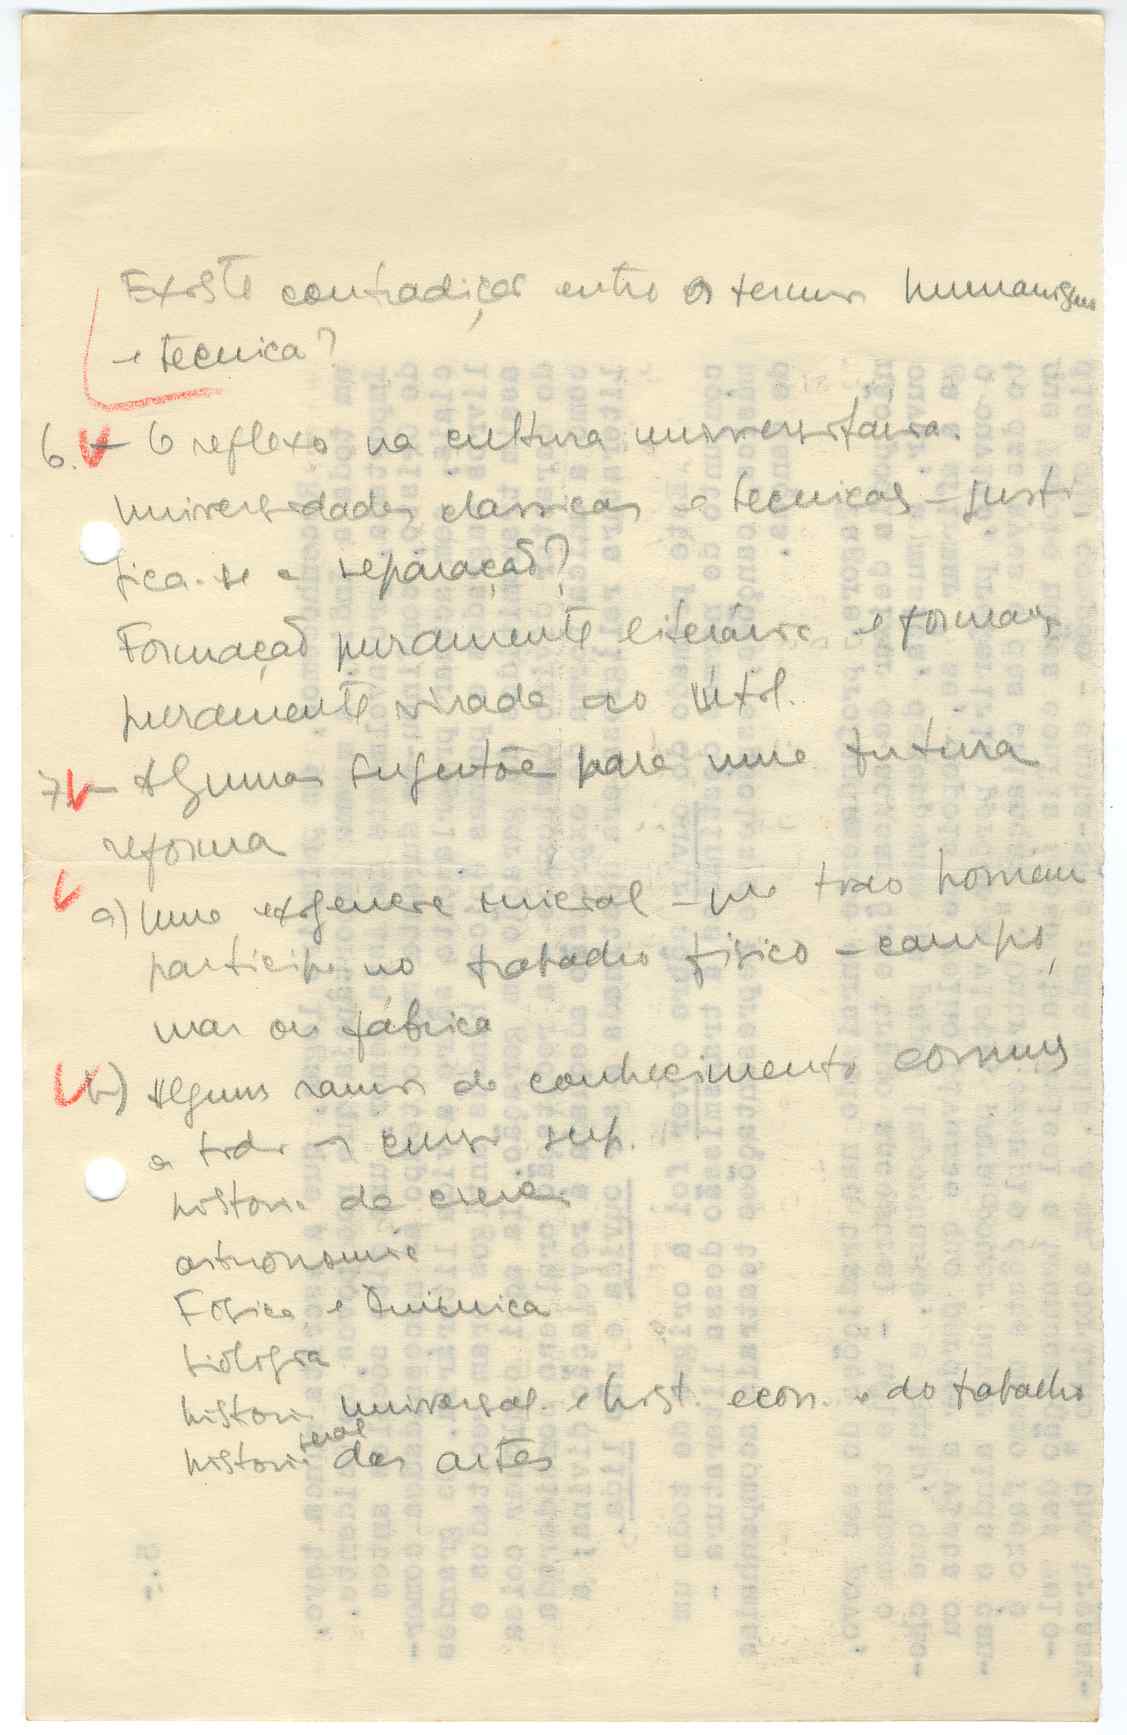 Existe contradição entre os termos humanismo
e tecnica?
6. – O reflexo na cultura universitária.
Universidades classicas e tecnicas – justi
fica-se a separação?
Formação puramente literária e formação
puramente virada ao útil.
7 – Algumas sugestões para uma futura
reforma
a) Uma exigencia inicial – que todo homem
participe no trabalho fisico – campo,
mar ou fábrica
b) Alguns ramos do conhecimento comuns
a todos os cursos sup.
historia da ciencia
astronomia
Fisica e Quimica
biologia
historia universal e hist. econ. e do trabalho
historia geral das artes